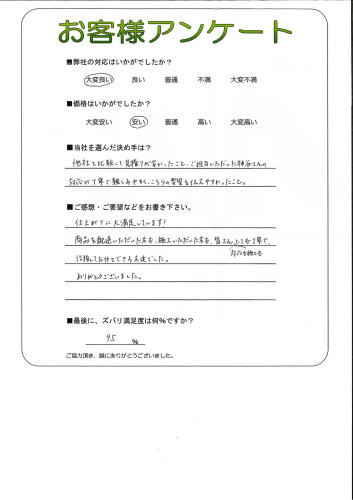 お客様アンケート
■弊社の対応はいかがでしたか？
大変良い 良い 普通 不満 大変不満
■価格はいかがでしたか？
大変安い 安い 普通 高い 大変高い
■当社を選んだ決め手は？
他社と比較して見積りが安かったこと、ご担当いただいた神谷さんの
対応が丁寧で親しみやすく、こちらの要望を伝えやすかったこと。
■ご感想・ご要望などをお書き下さい。
仕上がりに大満足しています!
商品を配達いただいた方も、施工いただいた方も、皆さんとても丁寧で、
対応も
信頼してお任せできる方達でした。
ありがとうございました。
■最後に、ズバリ満足度は何%ですか？
95 %
ご協力頂き、誠にありがとうございました。